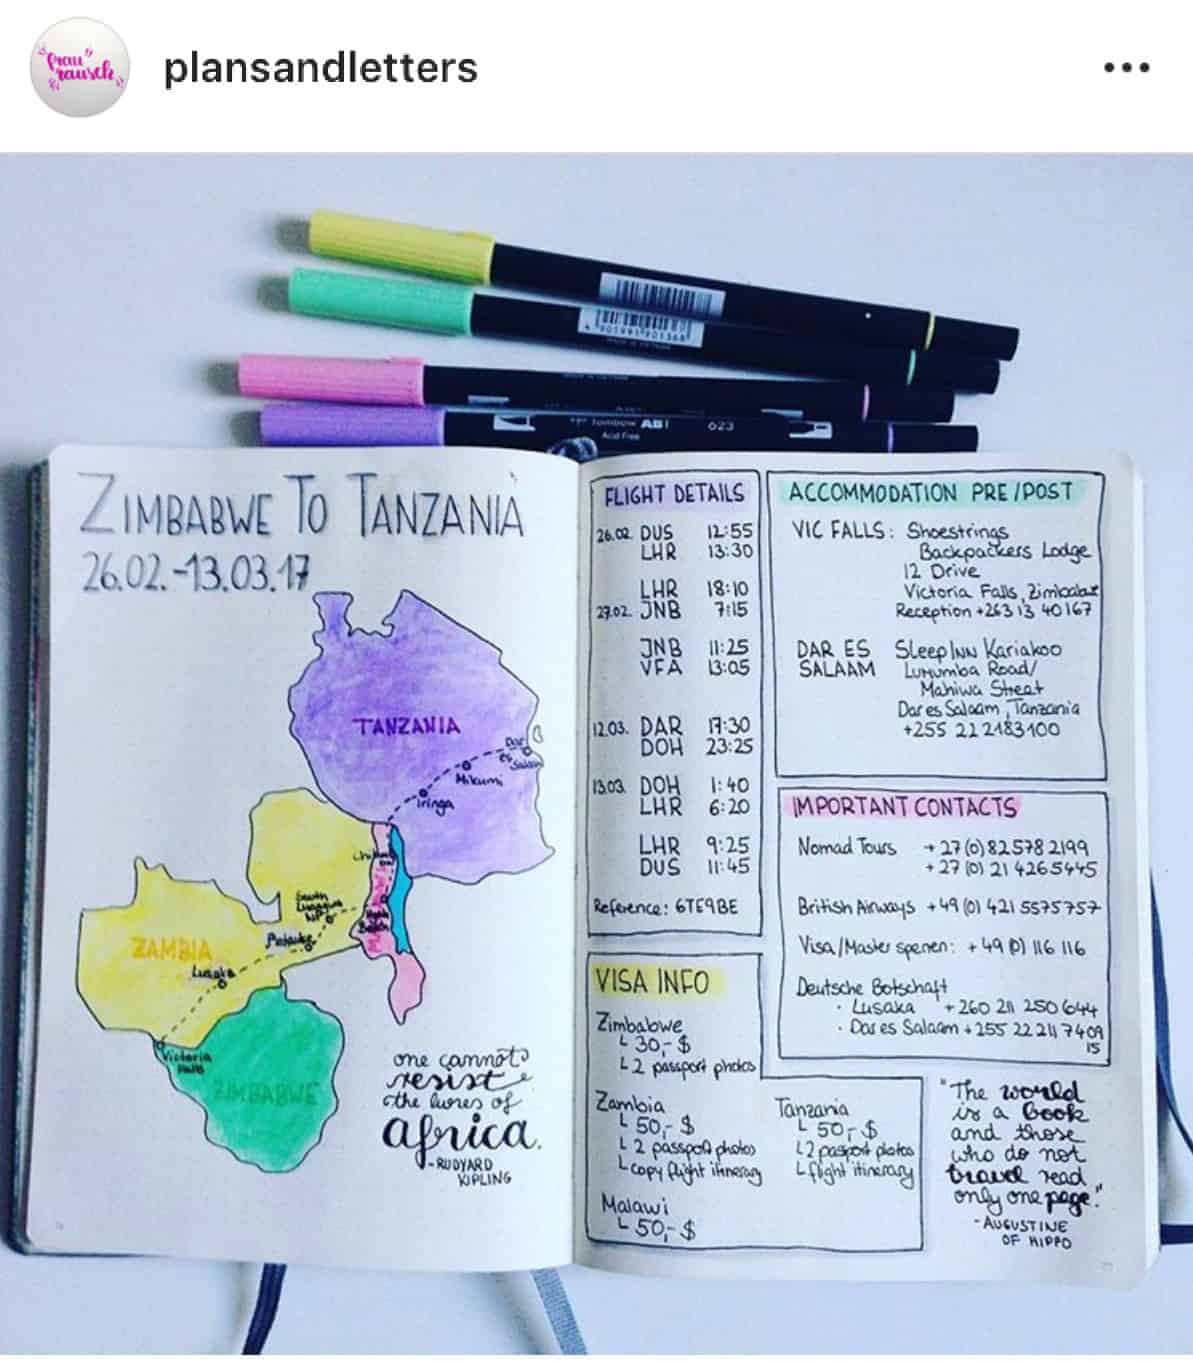 "frau"
rausch
plansandletters
4 901991 901368
MADE IN VIETNAM
Tombow ABT 623
Acid Free
ZIMBABWE TO TANZANIA
26.02.-13.03.17
TANZANIA
Dar
es
Salaam
Mikumi
Iringa
South
Luangwa
NP
Petauke
ZAMBIA
Lusaka
Victoria
Falls
ZIMBABWE
one cannot
resist
the lures of
africa.
-RUDYARD
KIPLING
FLIGHT DETAILS
26.02. DUS 12:55
LHR 13:30
LHR 18:10
27.02. JNB 7:15
JNB 11:25
VFA 13:05
12.03. DAR 17:30
DOH 23:25
13.03. DOH 1:40
LHR 6:20
LHR 9:25
DUS 11:45
Reference: 6TE9BE
ACCOMMODATION PRE/POST
VIC FALLS: Shoestrings
Backpackers Lodge
12 Drive
Victoria Falls, Zimbabwe
Reception +263 13 40167
DAR ES SleepInn Kariakoo
SALAAM Lumumba Road/
Mahiwa Street
Dar es Salaam, Tanzania
+255 22 2183100
IMPORTANT CONTACTS
Nomad Tours +27 (0) 82 578 2199
+27 (0) 21 426 5445
British Airways +49 (0) 421 5575757
Visa/Master sperren: +49 (0) 116 116
Deutsche Botschaft
· Lusaka +260 211 250 644
· Dar es Salaam +255 22 211 7409
15
VISA INFO
Zimbabwe
└ 30,- $
└ 2 passport photos
Zambia
└ 50,- $
└ 2 passport photos
└ copy flight itinerary
Malawi
└ 50,- $
Tanzania
└ 50,- $
└ 2 passport photos
└ flight itinerary
"The world
is a book
and those
who do not
travel read
only one page."
-AUGUSTINE
OF HIPPO